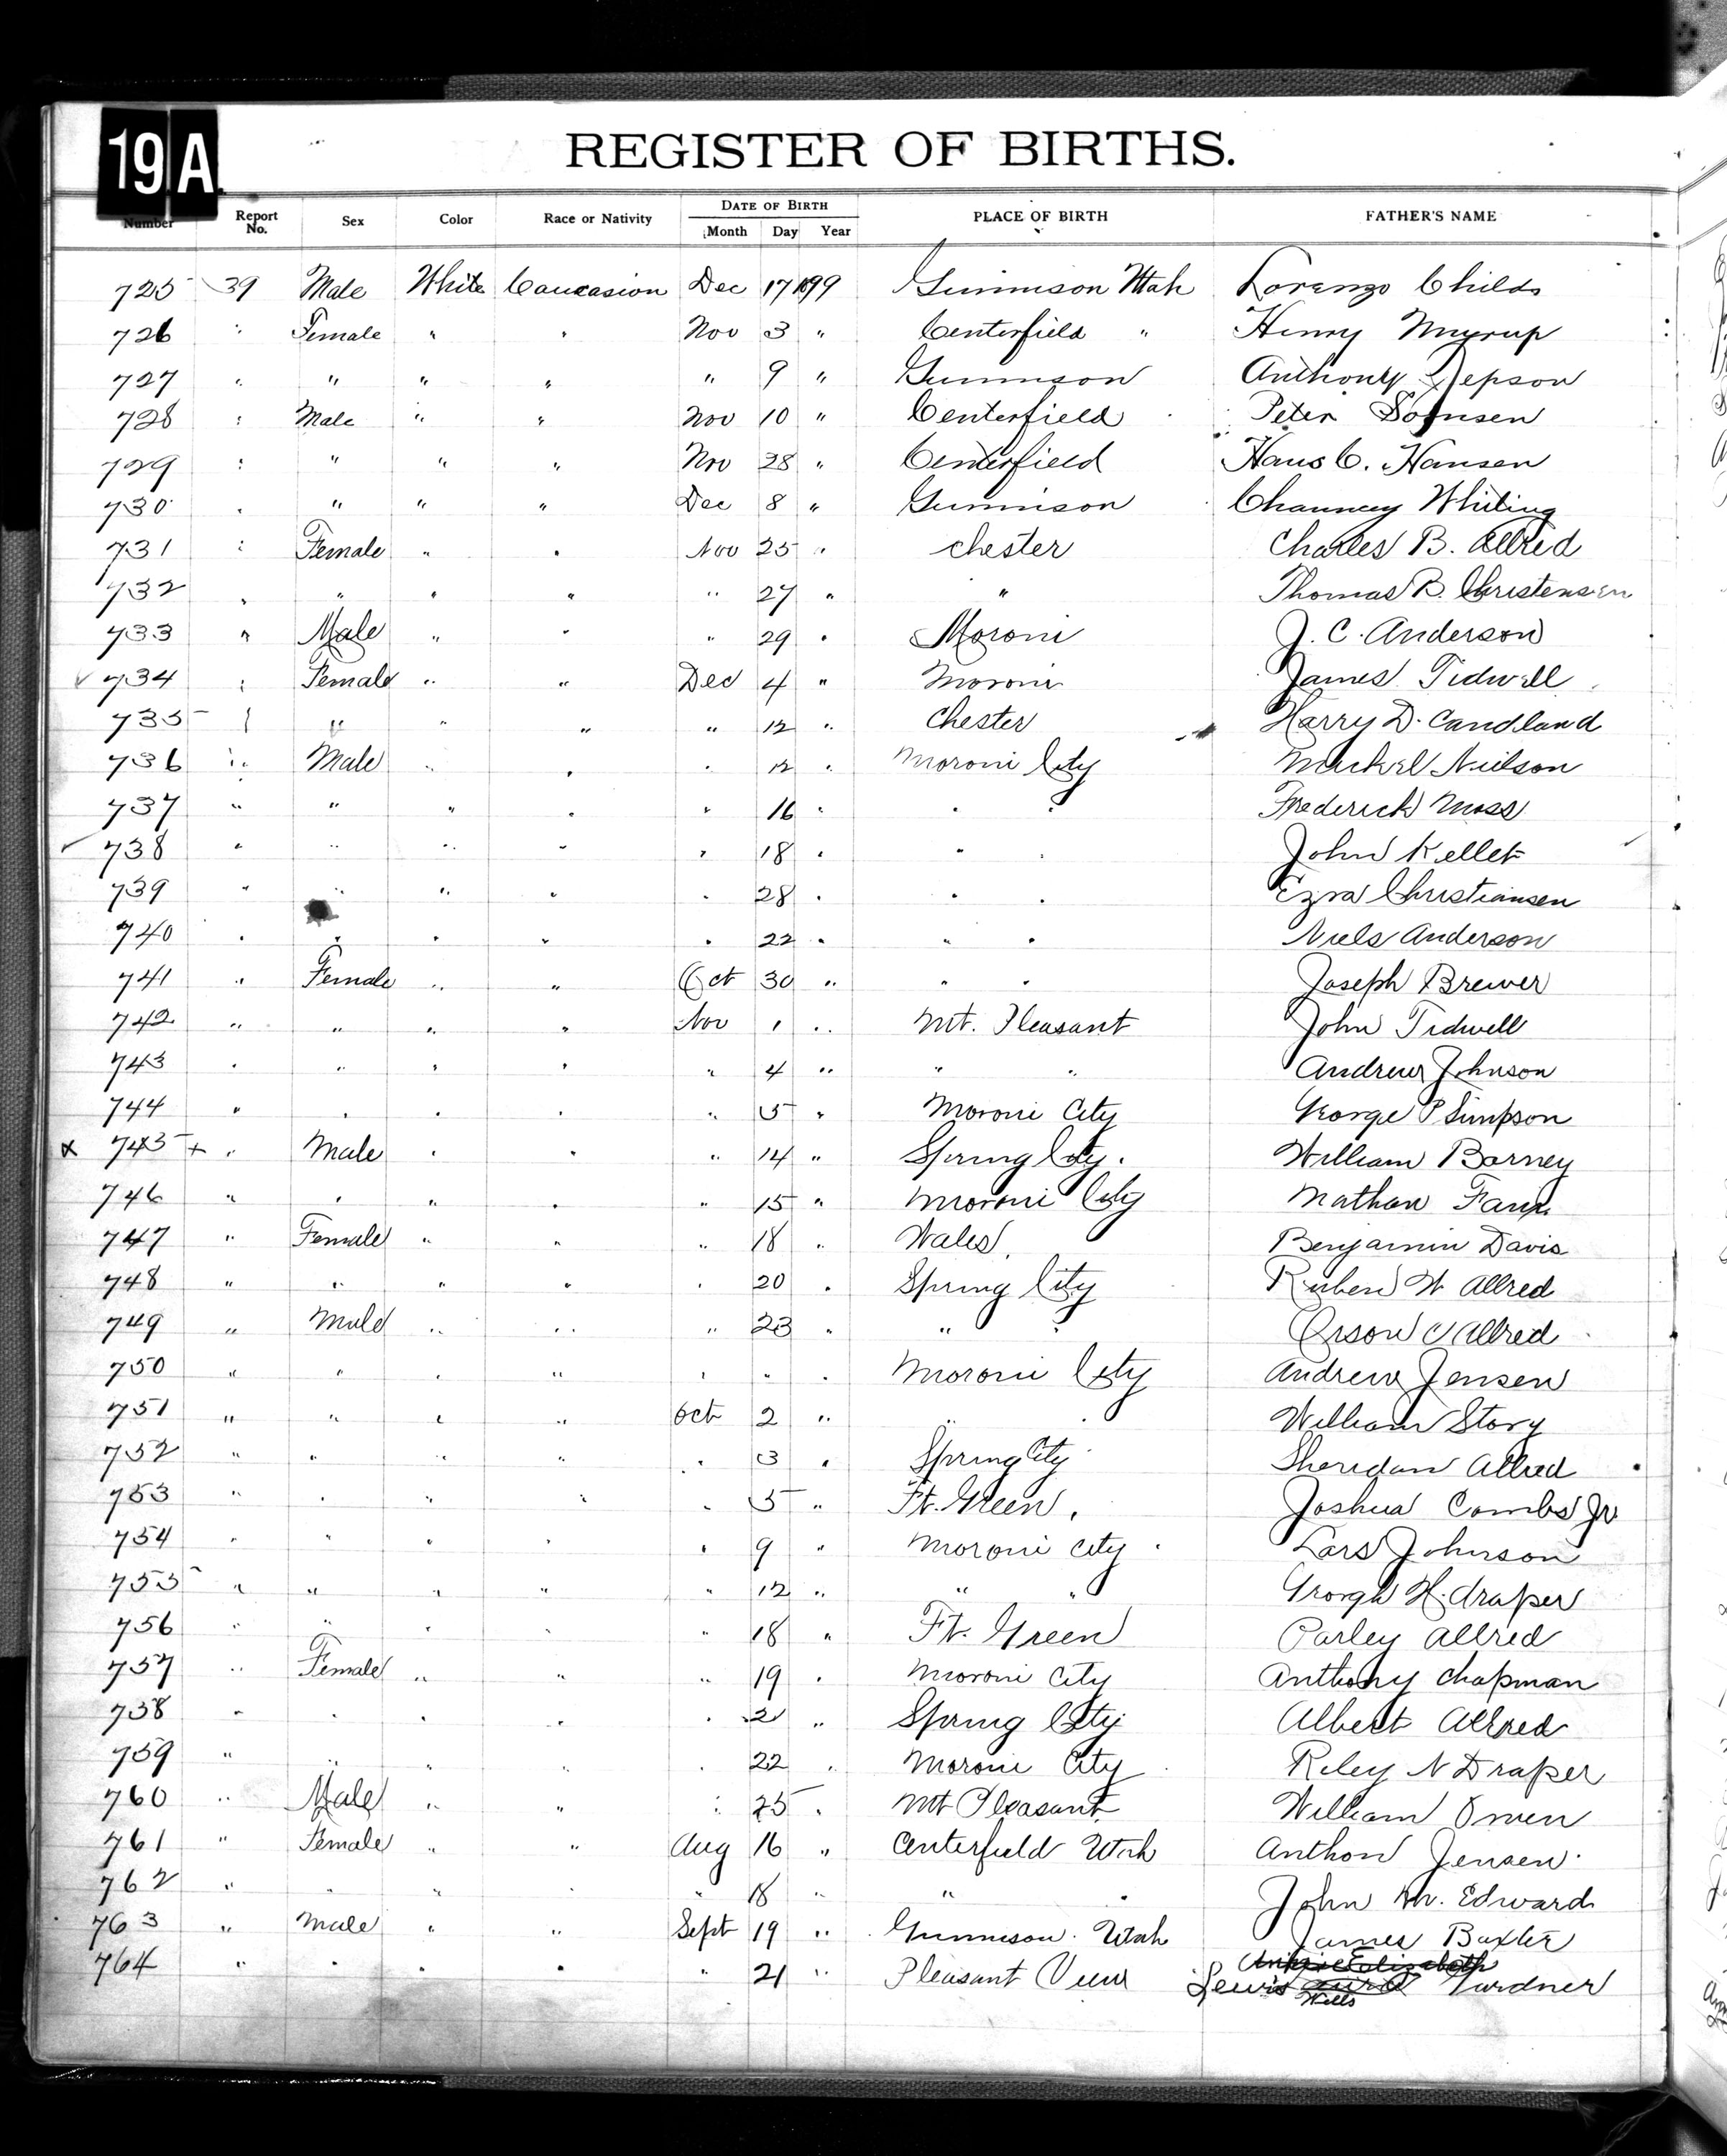 19 A
REGISTER OF BIRTHS.
Number Report No. Sex Color Race or Nativity DATE OF BIRTH Month Day Year PLACE OF BIRTH FATHER'S NAME
725 39 Male White Caucasion Dec 17 1899 Gunnison Utah Lorenzo Childs
726 " Female " " Nov 3 " Centerfield " Henry Myrup
727 " " " " " 9 " Gunnison Anthony Jepson
728 " Male " " Nov 10 " Centerfield Peter
729 " " " " Nov 28 " Centerfield Hans C. Hansen
730 " " " " Dec 8 " Gunnison Chauncey Whiting
731 " Female " " Nov 25 " Chester Charles B. Allred
732 " " " " " 27 " " Thomas B. Christensen
733 " Male " " " 29 " Moroni J. C. Anderson
734 " Female " " Dec 4 " Moroni James Tidwell
735 " " " " " 12 " Chester Harry D. Candland
736 " Male " " " 12 " Moroni City Nielson
737 " " " " " 16 " " " Frederick Moss
738 " " " " " 18 " " " John Kellet
739 " " " " " 28 " " " Ezra Christiansen
740 " " " " " 22 " " " Niels Anderson
741 " Female " " Oct 30 " " " Joseph Brewer
742 " " " " Nov 1 " Mt. Pleasant John Tidwell
743 " " " " " 4 " " " Andrew Johnson
744 " " " " " 5 " Moroni City George P Simpson
x 745 + " Male " " " 14 " Spring City. William Barney
746 " " " " " 15 " Moroni City Nathan
747 " Female " " " 18 " Wales. Benjamin Davis
748 " " " " " 20 " Spring City Ruben W Allred
749 " Male " " " 23 " " " Orson C Allred
750 " " " " " " " Moroni City Andrew Jensen
751 " " " " Oct 2 " " " William Story
752 " " " " " 3 " Spring City Sheridan Allred
753 " " " " " 5 " Ft. Green. Joshua Combs Jr
754 " " " " " 9 " Moroni City Lars Johnson
755 " " " " " 12 " " " George H. Draper
756 " " " " " 18 " Ft. Green Parley Allred
757 " Female " " " 19 " Moroni City Anthony Chapman
758 " " " " " 21 " Spring City Albert Allred
759 " " " " " 22 " Moroni City Riley N Draper
760 " Male " " " 25 " Mt Pleasant William Owen
761 " Female " " Aug 16 " Centerfield Utah Anthon Jensen
762 " " " " " 18 " " " John M. Edward
763 " Male " " Sept 19 " Gunnison. Utah James Baxter
764 " " " " " 21 " Pleasant View Lewis Wills Gardner